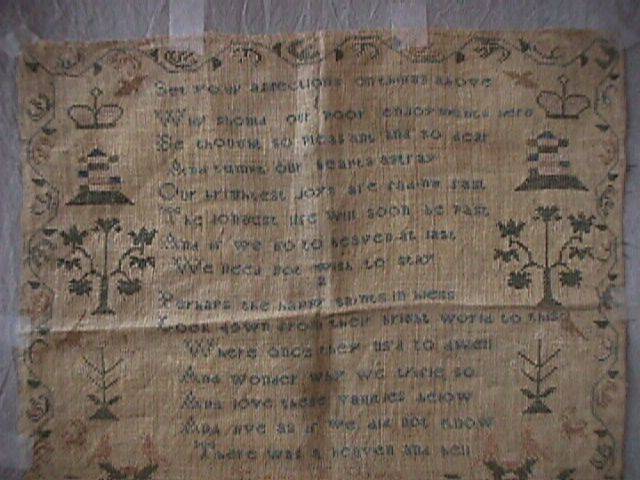 Set your affections on things above
Why should our poor enjoyments here
Be thought so pleasant and so dear
And tempt our hearts astray
Our brightest joys are fading fast
The longest life will soon be past
And if we go to heaven at last
We need not wish to stay
2
Perhaps the happy saints in bless
Look down from their bright world to this
Where once they us'd to dwell
And wonder why we trifle so
And love these vanities below
And live as if we did not know
There was a heaven and hell